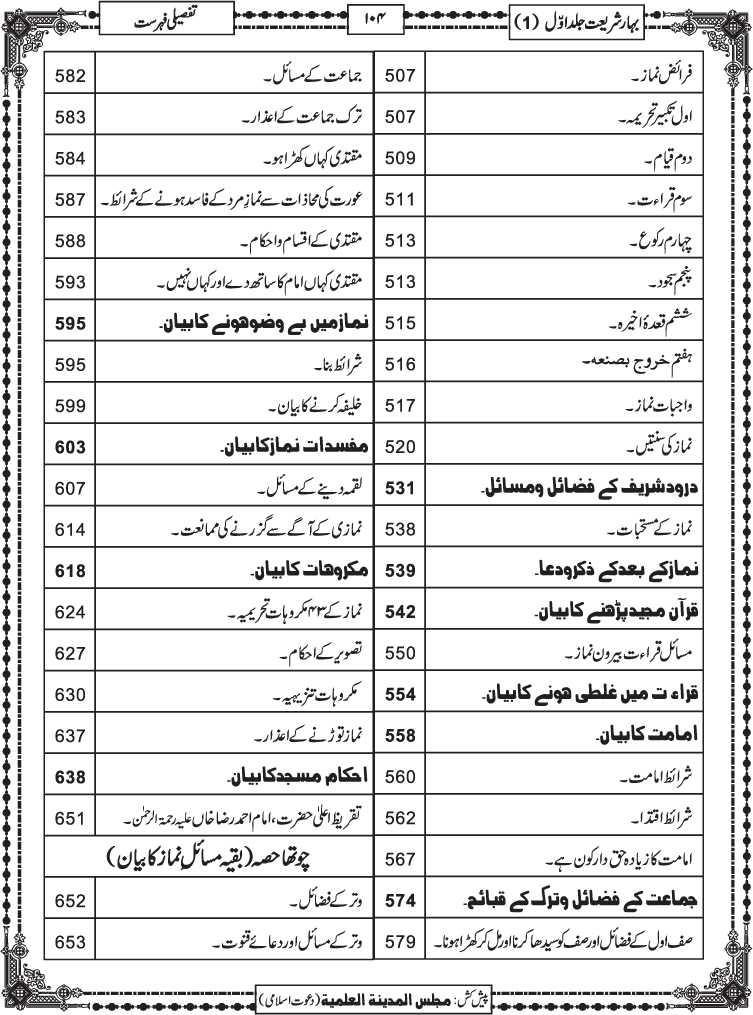 بہار شریعت جلد اوّل (1)
۱۰۴
تفصیلی فہرست
فرائض نماز۔ 507
اول تکبیر تحریمہ۔ 507
دوم قیام۔ 509
سوم قراءت۔ 511
چہارم رکوع۔ 513
پنجم سجود۔ 513
ششم قعدۂ اخیرہ۔ 515
ہفتم خروج بصنعہ۔ 516
واجبات نماز۔ 517
نماز کی سنتیں۔ 520
درود شریف کے فضائل ومسائل۔ 531
نماز کے مستحبات۔ 538
نماز کے بعد کے ذکر ودعا۔ 539
قرآن مجید پڑھنے کا بیان۔ 542
مسائل قراءت بیرون نماز۔ 550
قراء ت میں غلطی ہونے کا بیان۔ 554
امامت کا بیان۔ 558
شرائط امامت۔ 560
شرائط اقتدا۔ 562
امامت کا زیادہ حق دار کون ہے۔ 567
جماعت کے فضائل وترک کے قبائح۔ 574
صف اول کے فضائل اور صف کو سیدھا کرنا اور مل کر کھڑا ہونا۔ 579
جماعت کے مسائل۔ 582
ترک جماعت کے اعذار۔ 583
مقتدی کہاں کھڑا ہو۔ 584
عورت کی محاذات سے نمازِ مرد کے فاسد ہونے کے شرائط۔ 587
مقتدی کے اقسام و احکام۔ 588
مقتدی کہاں امام کا ساتھ دے اور کہاں نہیں۔ 593
نماز میں بے وضو ہونے کا بیان۔ 595
شرائط بنا۔ 595
خلیفہ کرنے کا بیان۔ 599
مفسدات نماز کا بیان۔ 603
لقمہ دینے کے مسائل۔ 607
نمازی کے آگے سے گزرنے کی ممانعت۔ 614
مکروهات کا بیان۔ 618
نماز کے ۴۳ مکروہات تحریمیہ۔ 624
تصویر کے احکام۔ 627
مکروہات تنزیہیہ۔ 630
نماز توڑنے کے اعذار۔ 637
احکام مسجد کا بیان۔ 638
تقریظ اعلیٰ حضرت، امام احمد رضا خاں علیہ رحمۃ الرحمٰن۔ 651
چوتھا حصہ (بقیہ مسائلِ نماز کا بیان)
وتر کے فضائل۔ 652
وتر کے مسائل اور دعائے قنوت۔ 653
پیش کش: مجلس المدینة العلمیة (دعوت اسلامی)